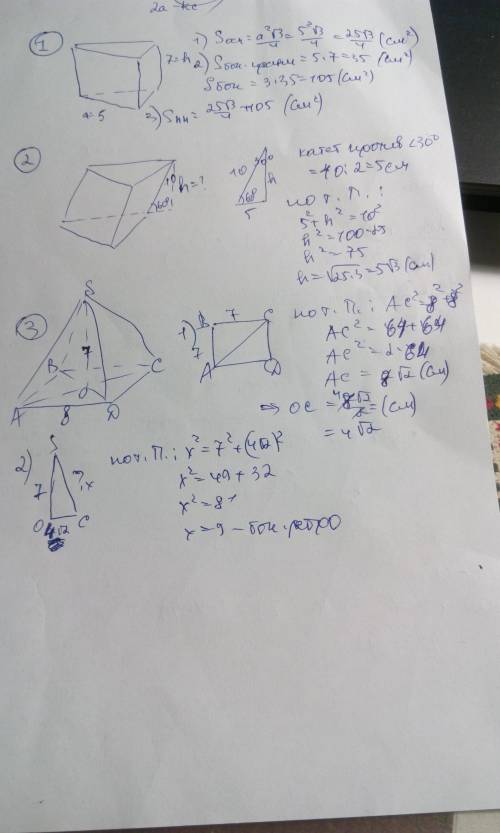 1
1) Sосн = a²√3/4 = 5²√3/4 = 25√3/4 (см²)
7=h
2) Sбок. грани = 5·7=35 (см²)
Sбок = 3·35=105(см²)
a=5
3) Sпп = 25√3/4 + 105 (см²)
2
10
h=?
60°
10
30°
h
60°
5
катет против <30°
= 10:2=5см
по т. П.:
5²+h²=10²
h²=100-25
h²=75
h=√25·3=5√3(см)
3
S
7
B
C
O
A
8
D
1)
B
7
C
7
A
D
по т. П.: AC²=8²+8²
AC²=64+64
AC²=2·64
AC=8√2 (см)
⇒ OC = 8√2/2 = (см)
= 4√2
2)
S
7
?x
O
4√2
C
по т. П.: x²=7²+(4√2)²
x²=49+32
x²=81
x=9 – бок. ребро